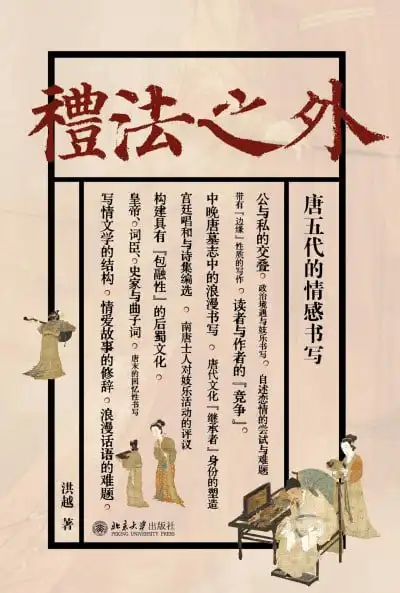 禮法之外
唐五代的情感书写
公与私的交叠。政治境遇与妓乐书写。自述恋情的尝试与难题
带有『边缘』性质的写作。读者与作者的『竞争』。
中晚唐墓志中的浪漫书写 唐代文化『继承者』身份的塑造
宫廷唱和与诗集编选。南唐士人对妓乐活动的评议
构建具有『包融性』的后蜀文化。
皇帝、词臣、史家与曲子词。唐末的回忆性书写
写情文学的结构。情爱故事的修辞。浪漫话语的难题。
洪越 著
北京大学出版社
PEKING UNIVERSITY PRESS